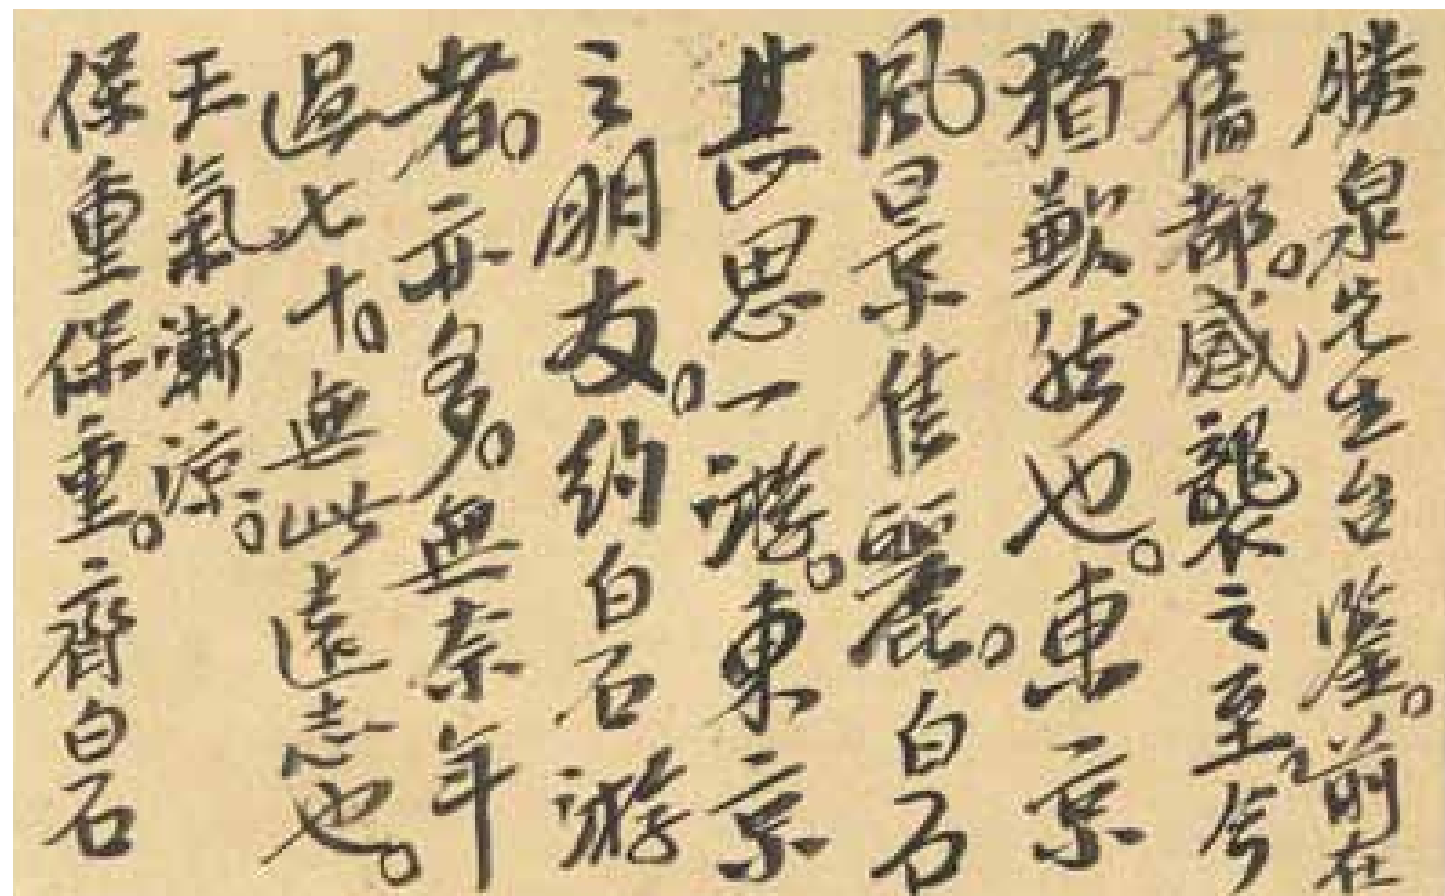 勝泉先生台鑒。前在
舊都。感襲之至。今
猶歉然也。東京
風景佳麗。白石
甚思一遊。東京
之朋友。約白石游
者。亦多。無奈年
過七十。無此遠志也。
天氣漸涼。
保重保重。齊白石